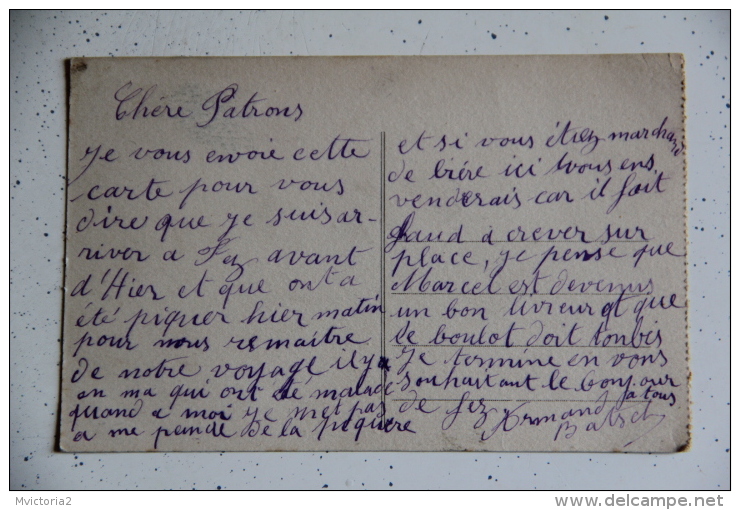 Chère Patrons
Je vous envoie cette
carte pour vous
dire que je suis ar-
river a Fez avant
d'Hier et que ont a
été piquer hier matin
pour nous remaitre
de notre voyage il y
en na qui ont été malade
quand a moi je met pas
a me peindé de la piqure
et si vous étiez marchand
de bière ici vous ens
venderais car il fait
chaud à crever sur
place, je pense que
Marcel est devenus
un bon livreur et que
le boulot doit tombes
Je termine en vous
souhaitant le bonjour
a tous
de fez Armand
Mvictoria2
http://www.delcampe.net